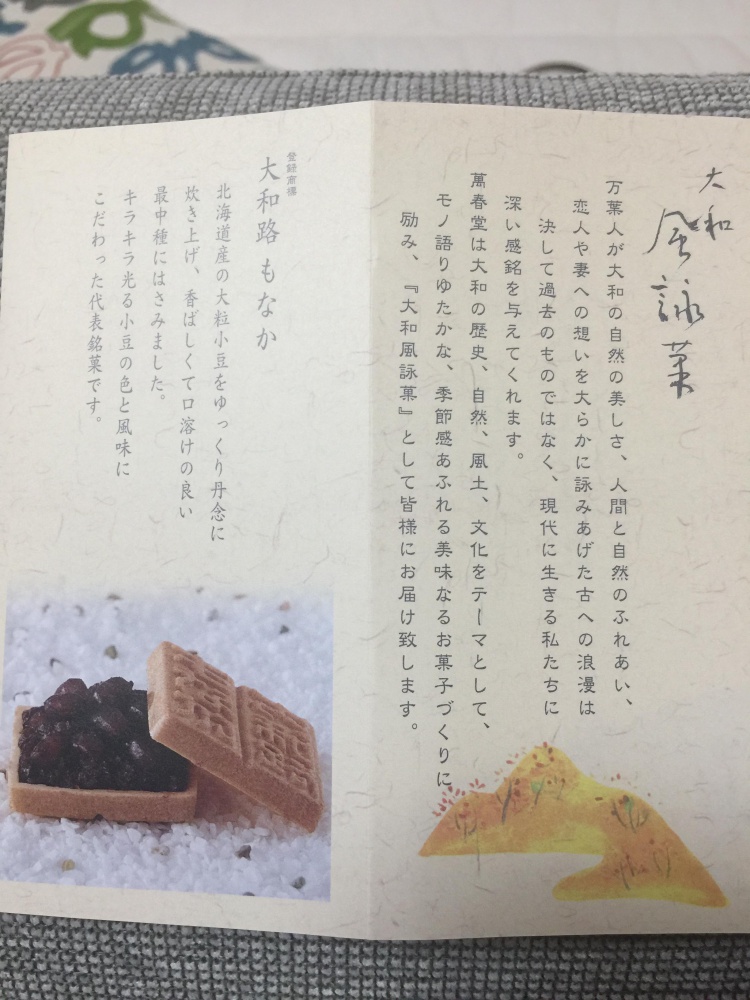 大和
風詠菓
万葉人が大和の自然の美しさ、人間と自然のふれあい、
恋人や妻への想いを大らかに詠みあげた古への浪漫は
決して過去のものではなく、現代に生きる私たちに
深い感銘を与えてくれます。
萬春堂は大和の歴史、自然、風土、文化をテーマとして、
モノ語りゆたかな、季節感あふれる美味なるお菓子づくりに
励み、『大和風詠菓』として皆様にお届け致します。
登録商標
大和路もなか
北海道産の大粒小豆をゆっくり丹念に
炊き上げ、香ばしくて口溶けの良い
最中種にはさみました。
キラキラ光る小豆の色と風味に
こだわった代表銘菓です。